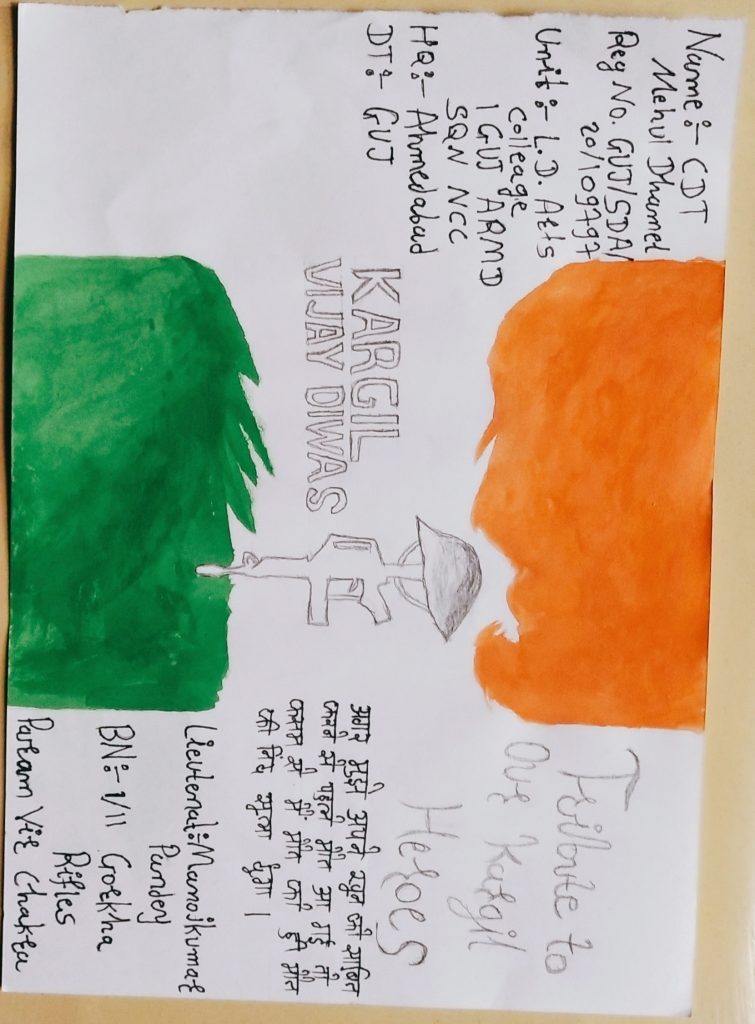 Name:- CDT
Mehul Dhamel
Reg No. GUJ/SDA/
20/109797
Unit:- L.D. Arts
Colleage
1 GUJ ARMD
SQN NCC
HQ:- Ahmedabad
DT:- GUJ
KARGIL
VIJAY DIWAS
Tribute to
Our Kargil
Heroes
अगर मुझे अपने खुन को साबित
करने से पहले मौत आ गई तो
कसम से में मौत को ही मौत
की निंद सुला दुंगा ।
Lieutenat:- Manojkumar
Pandey
BN:- 1/11 Gorkha
Rifles
Param Vir Chakra